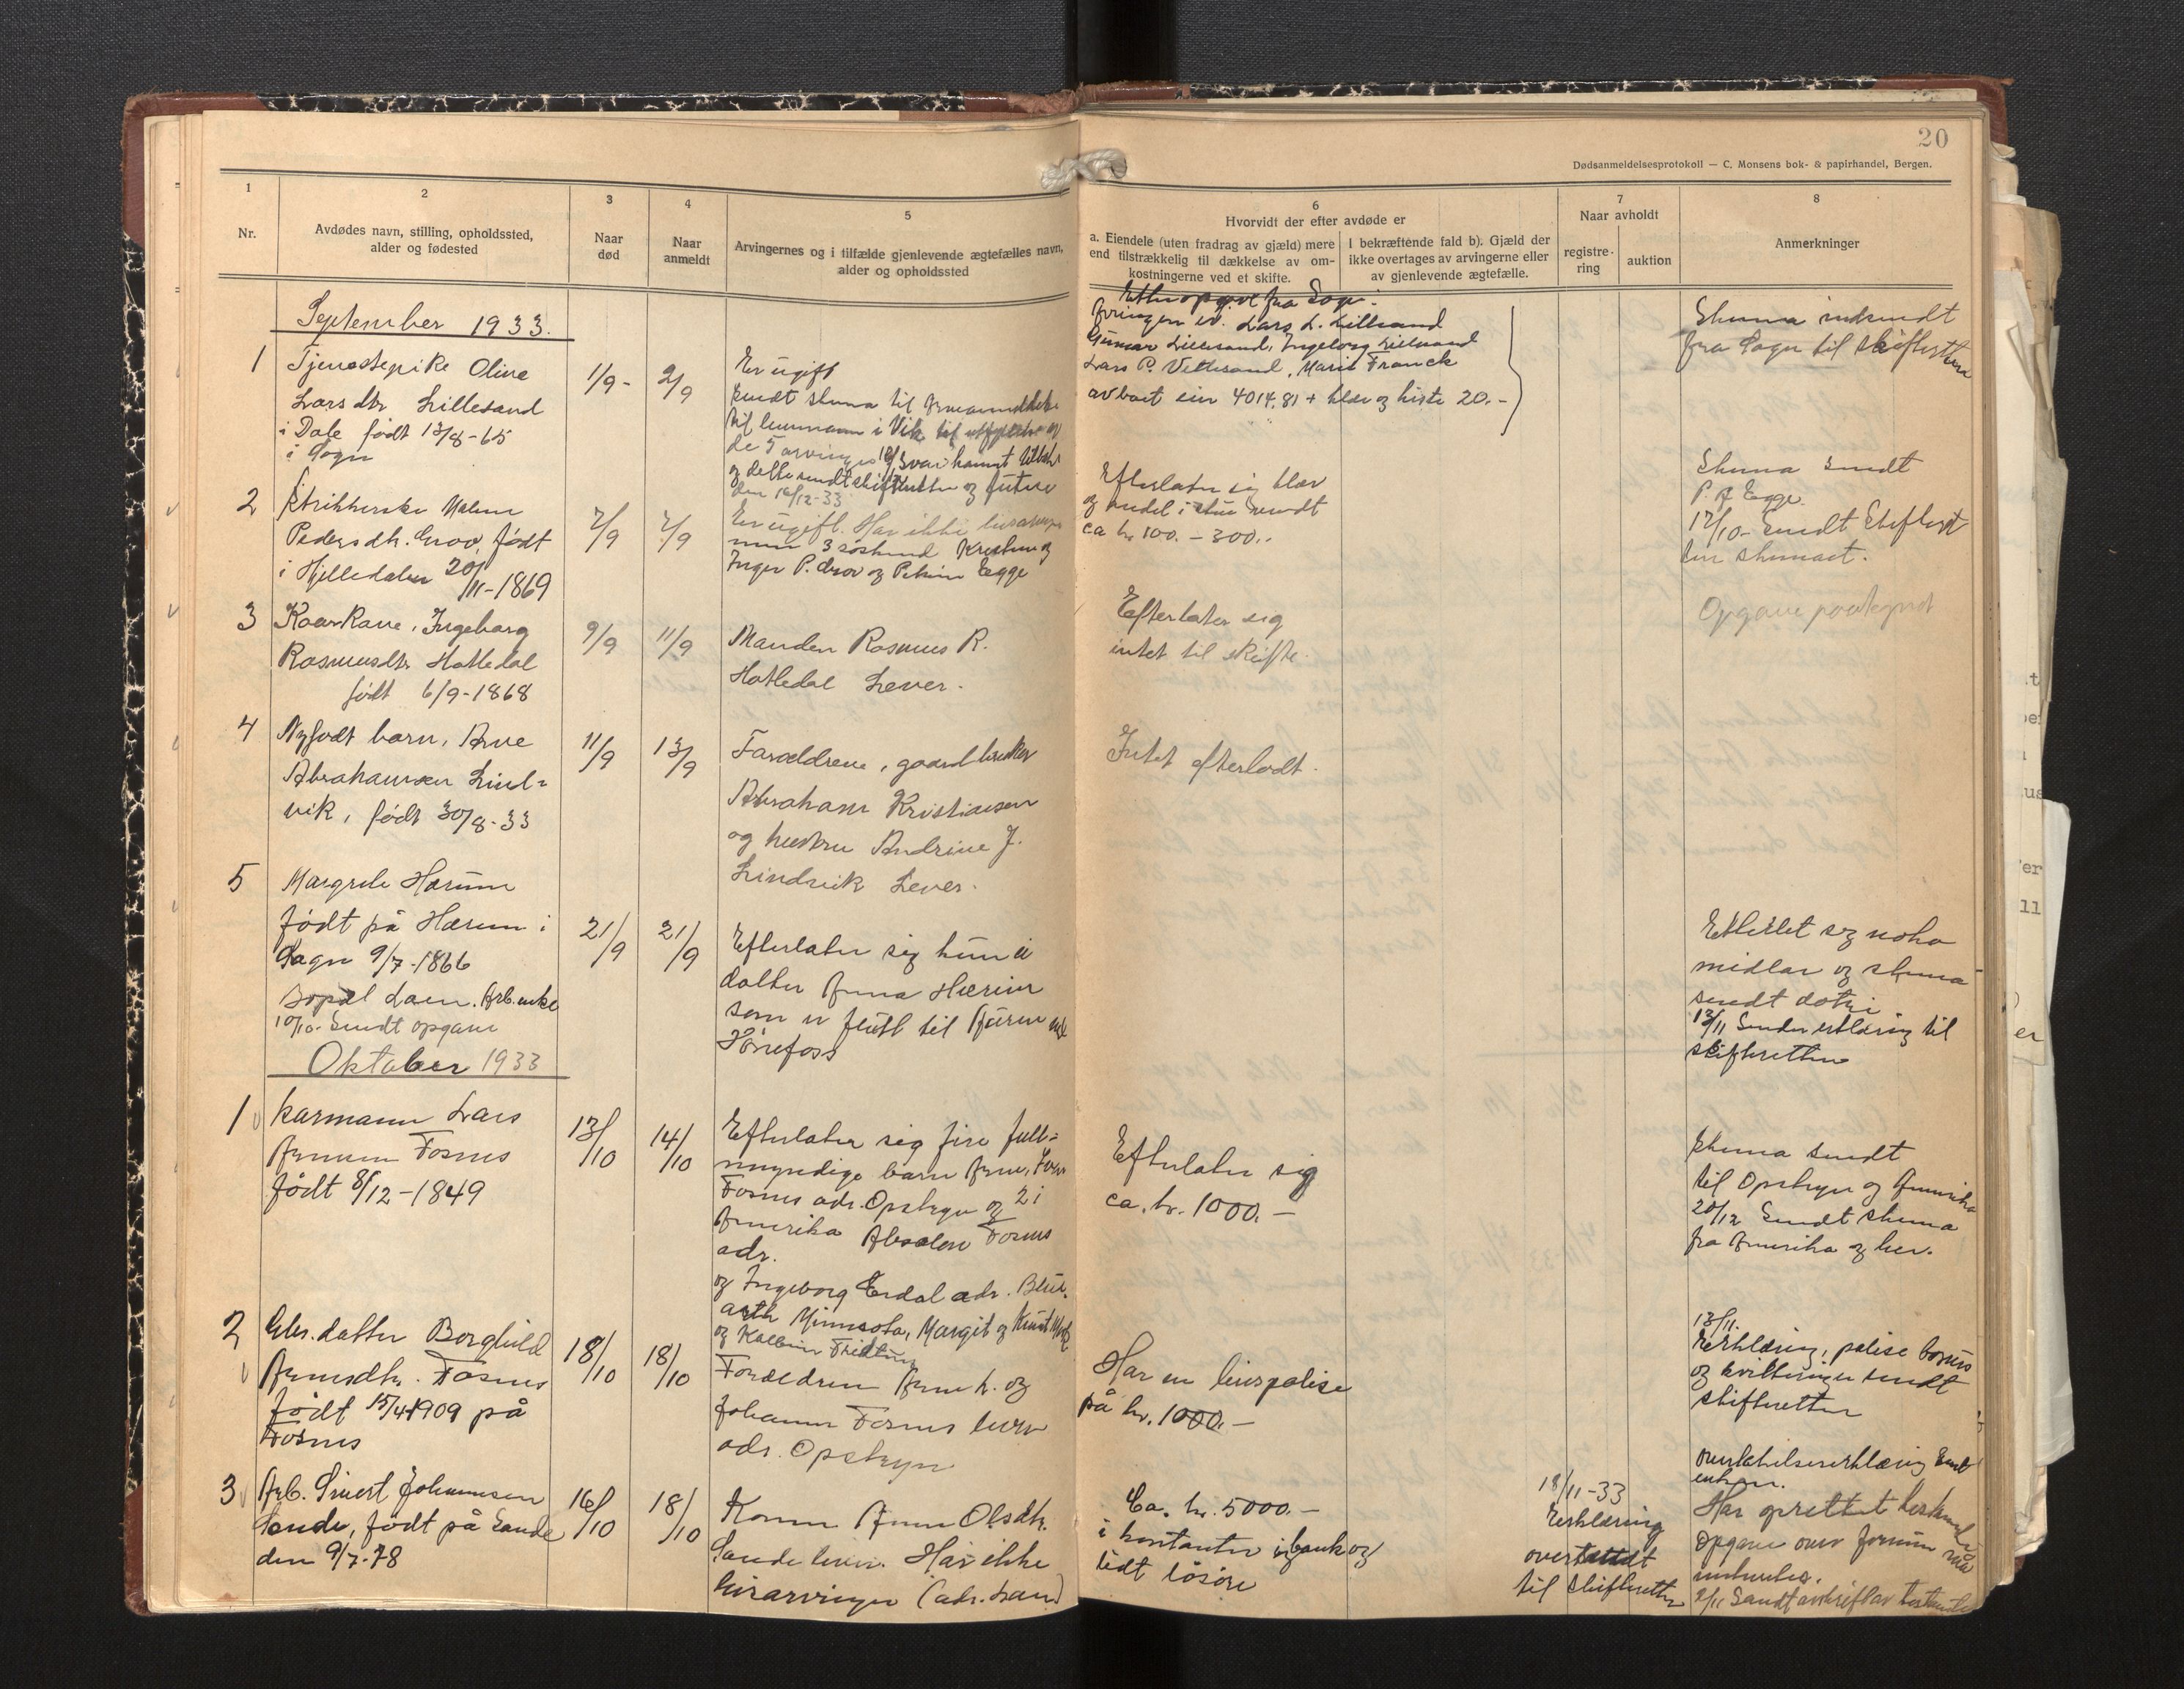 20
Dødsanmeldelsesprotokoll — C. Monsens bok- & papirhandel, Bergen.
1
Nr.
2
Avdødes navn, stilling, opholdssted,
alder og fødested
3
Naar
død
4
Naar
anmeldt
5
Arvingernes og i tilfælde gjenlevende ægtefælles navn,
alder og opholdssted
6
Hvorvidt der efter avdøde er
a. Eiendele (uten fradrag av gjæld) mere
end tilstrækkelig til dækkelse av om-
kostningerne ved et skifte.
I bekræftende fald b). Gjæld der
ikke overtages av arvingerne eller
av gjenlevende ægtefælle.
7
Naar avholdt
registre-
ring
auktion
8
Anmerkninger
September 1933.
1
Tjenestepike Oline
Lars dtr Lillesand
i Dale født 13/8-65
i Sogn
1/9-
2/9
Er ugift
sendt skema til
til lensmann i Vik til
de 5 arvinger
og dette sendt skifteretten
den 16/12-33
Efter opgave fra Sogn.
Arvingen er. Lars L. Lillesand
Gunnar Lillesand, Ingeborg Lillesand
Lars P. Vettesand, Marie Franck
4014,81 + klær og kiste 20.-
Skema indsendt
fra Sogn til skifteretten
2
Strikkerske Malene
Pedersdtr. Grov, født
i Hjelledalen 20/11-1869
7/9
7/9
Er ugift. Har ikke livsarvinger
men 3 søskend Kristine og
Inger P. Grov og Petrine Egge
Efterlater sig klær
og andel i stue verdt
ca kr 100.- 300..
Skema sendt
P. A Egge.
17/10- sendt Skifteret
ten skemaet.
3
Kaarkone, Ingeborg
Rasmusdtr Hatledal
født 6/9-1868
9/9
11/9
Manden Rasmus R.
Hatledal Lever.
Efterlater sig
intet til skifte.
Opgave
4
Nyfødt barn, Arne
Abrahamsen Lind-
vik, født 30/8-33
11/9
13/9
Forældrene, gaardbruker
Abraham Kristiansen
og hustru Andrine J.
Lindvik Lever.
Intet efterladt.
5
Margrete Hærum
født på Hærum i
Sogn 9/7-1866
Bopæl Loen. Arb. enke
10/10- Sendt opgave
21/9
21/9
Efterlater sig kun ei
datter Anna Hærum
som er flutt til
Hønefoss
Etterlet seg noko
midlar og skema
sendt dotri
13/11 Sender erklæring til
skifteretten
Oktober 1933
1
Karmann Lars
Arnesen Fosnes
født 8/12-1849
13/10
14/10
Efterlater sig fire full-
myndige barn Arne,
Fosnes adr. Opstryn og 2 i
Amerika Absalon Fosnes
adr.
og Ingeborg Erdal adr. Blue
arth Minnesota, Margit og Knut
og
Efterlater sig
ca. kr. 1000.-
Skema sendt
til Opstryn og Amerika
20/12 Sendt skema
fra Amerika og her.
2
Gbr. datter Borghild
Arnesdtr. Fosnes
født 15/4-1909 på
Fosnes
18/10
18/10
Foreldrene Arne L. og
Johanne Fosnes lever
adr. Opstryn
Har en livspolise
på kr. 1000.-
13/11.
Erklæring, polise bonus
og kvitteringer sendt
skifteretten
3
Arb. Sivert Johannesen
Sande, født på Sande
den 9/7-78
16/10
18/10
Konen Anne Olsdtr.
Sande lever. Har ikke
livsarvinger (adr. Loen)
Ca. kr. 5000.-
i kontanter i bank og
lidt løsøre
18/11-33
Erklæring
oversendt
til skifteretten
overtakelseserklæring sendt
enken.
Har oprettet testament
Opgave over formue
2/11 Sendt avskrift av testament